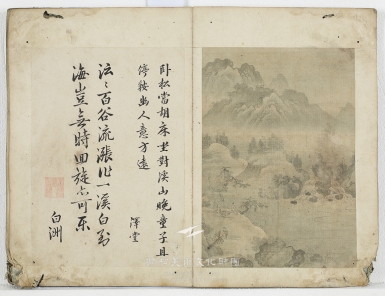 卧松當胡床坐對溪山晚童子且
停琴幽人意方遠
澤堂
泫泫百谷流漲作一溪白
海豈無時回旋亦可樂
白洲